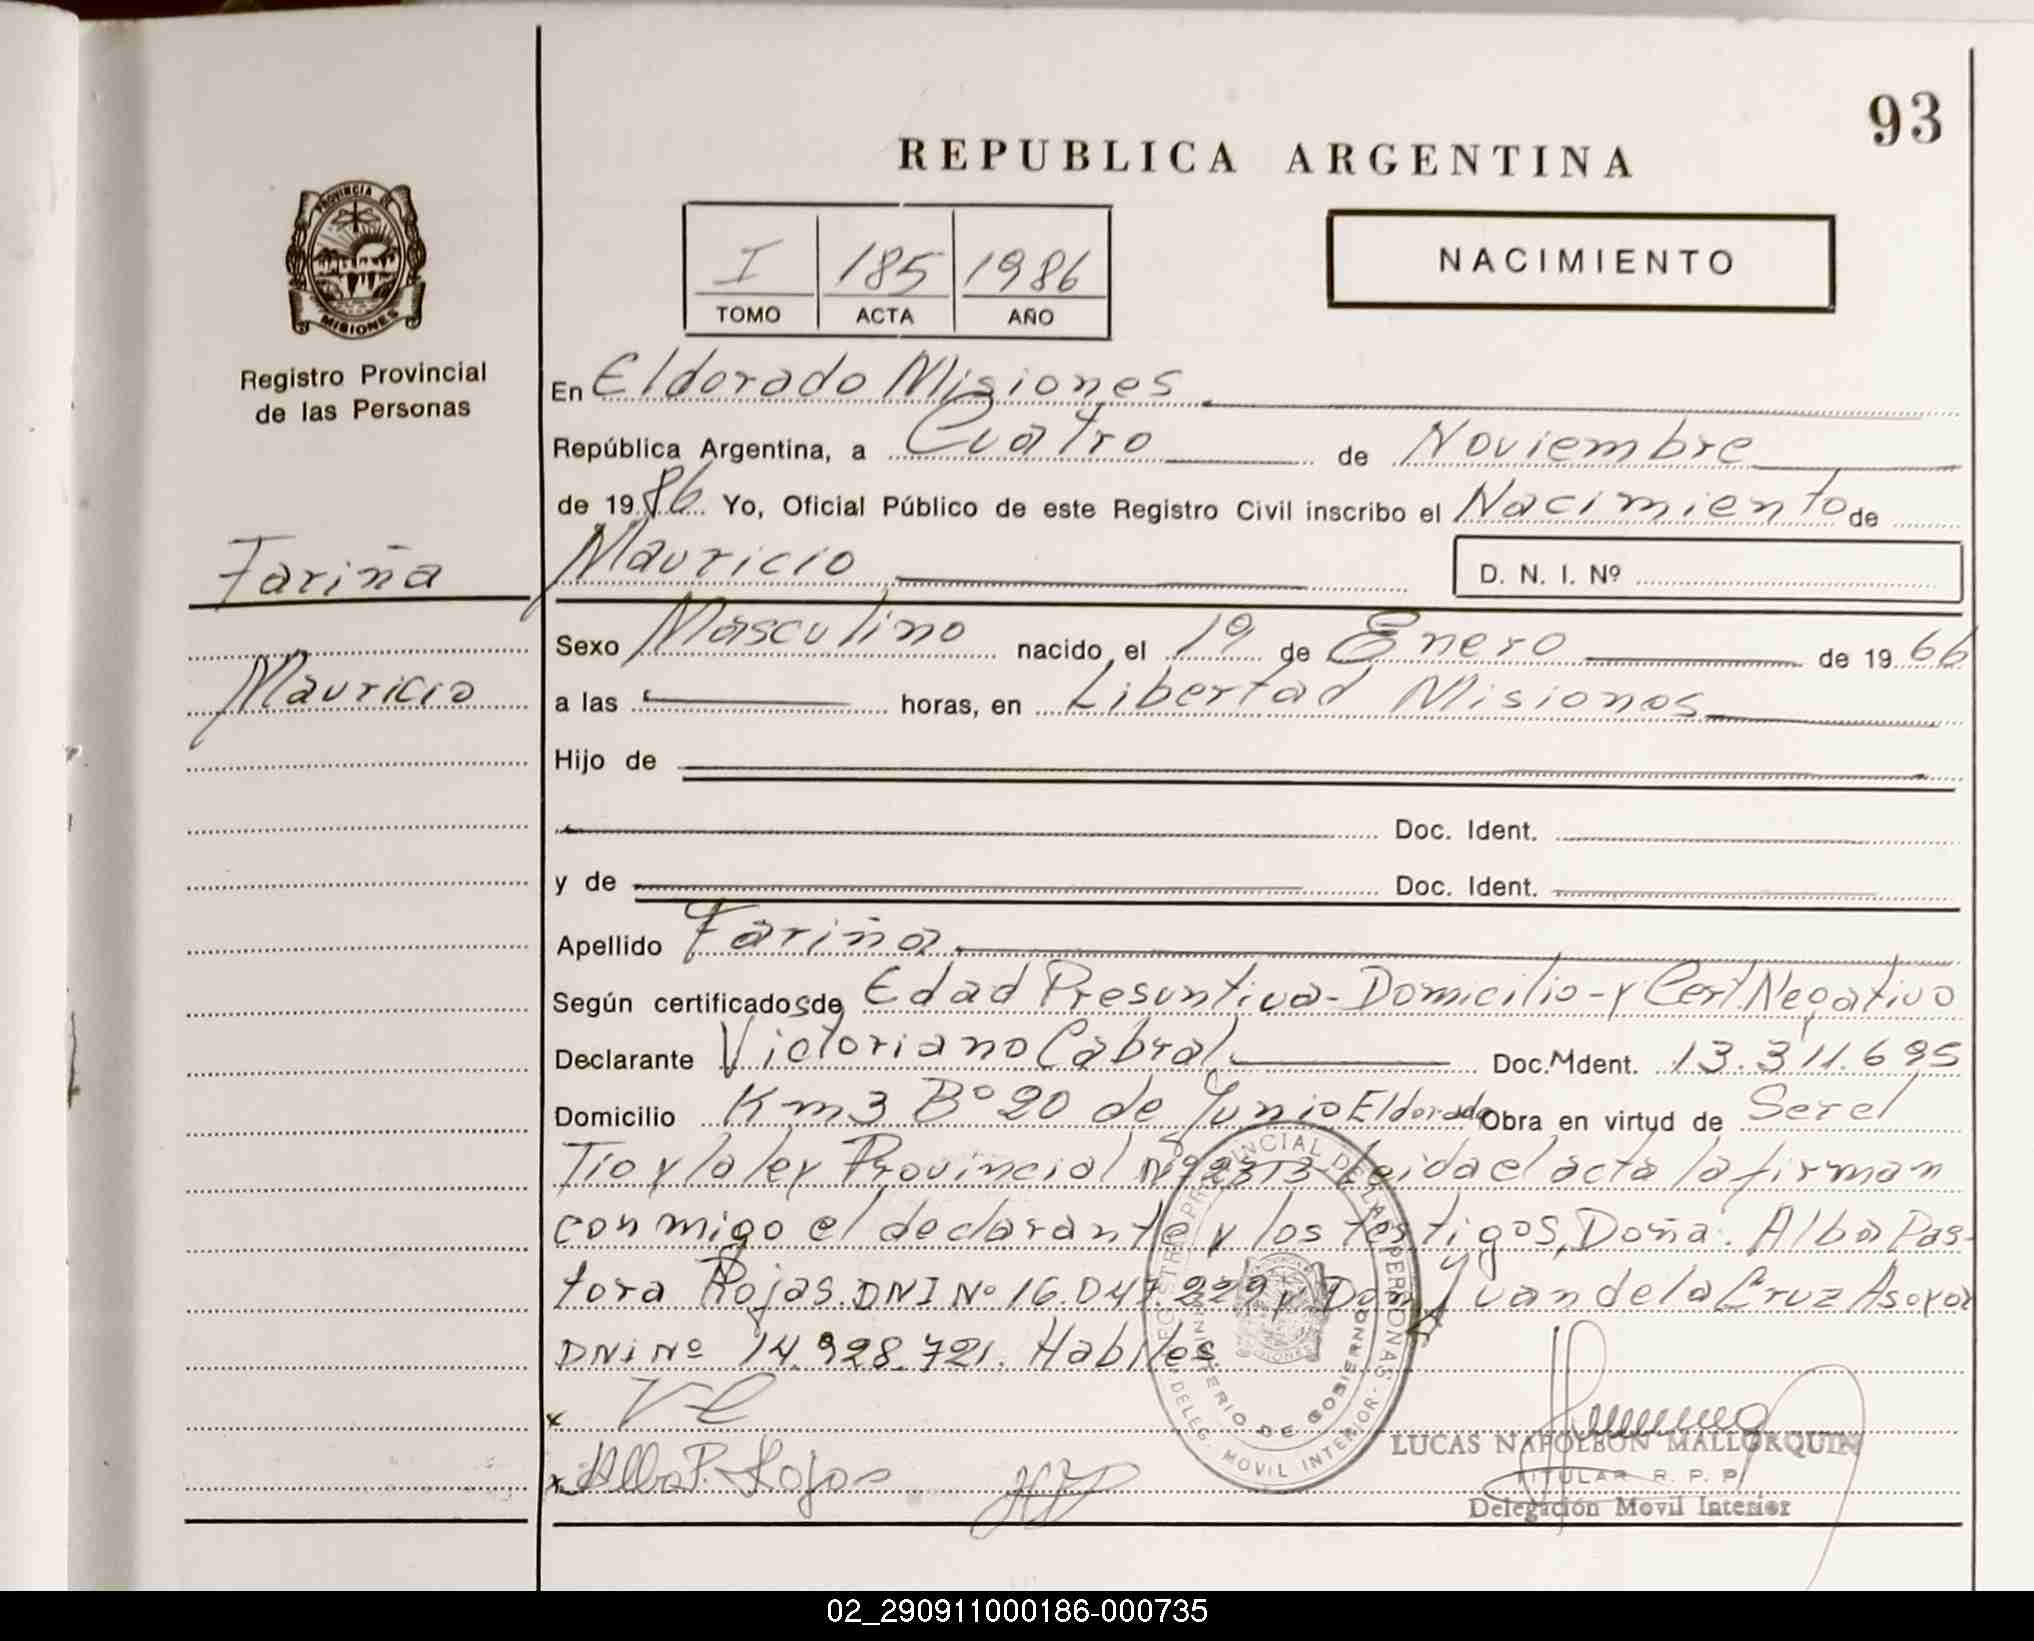 93
REPUBLICA ARGENTINA
PROVINCIA DE
MISIONES
Registro Provincial
de las Personas
I 185 1986
TOMO ACTA AÑO
NACIMIENTO
En Eldorado Misiones
República Argentina, a Cuatro de Noviembre
de 1986 Yo, Oficial Público de este Registro Civil inscribo el Nacimiento de
Fariña Mauricio D. N. I. Nº
Sexo Masculino nacido el 19 de Enero de 1966
Mauricio a las horas, en Libertad Misiones
Hijo de
Doc. Ident.
y de Doc. Ident.
Apellido Fariña
Según certificadosde Edad Presuntiva-Domicilio-y Cert Negativo
Declarante Victoriano Cabral Doc.MIdent. 13.311.695
Domicilio Km3 Bº 20 de Junio Eldorado Obra en virtud de Ser el
Tío y la ley Provincial Nº 2313 Leida el acta la firman
conmigo el declarante y los testigos, Doña: Alba Pas-
tora Rojas. DNI Nº 16.047.229 y Don Juan de la Cruz
DNi Nº 14.928.721. Habiles
x VC
x Alba P. Rojas
PROVINCIAL DE LAS PERSONAS
MINISTERIO DE GOBIERNO
DELEG. MOVIL INTERIOR
LUCAS NAPOLEON MALLORQUIN
TITULAR R. P. P.
Delegación Movil Interior
02_290911000186-000735